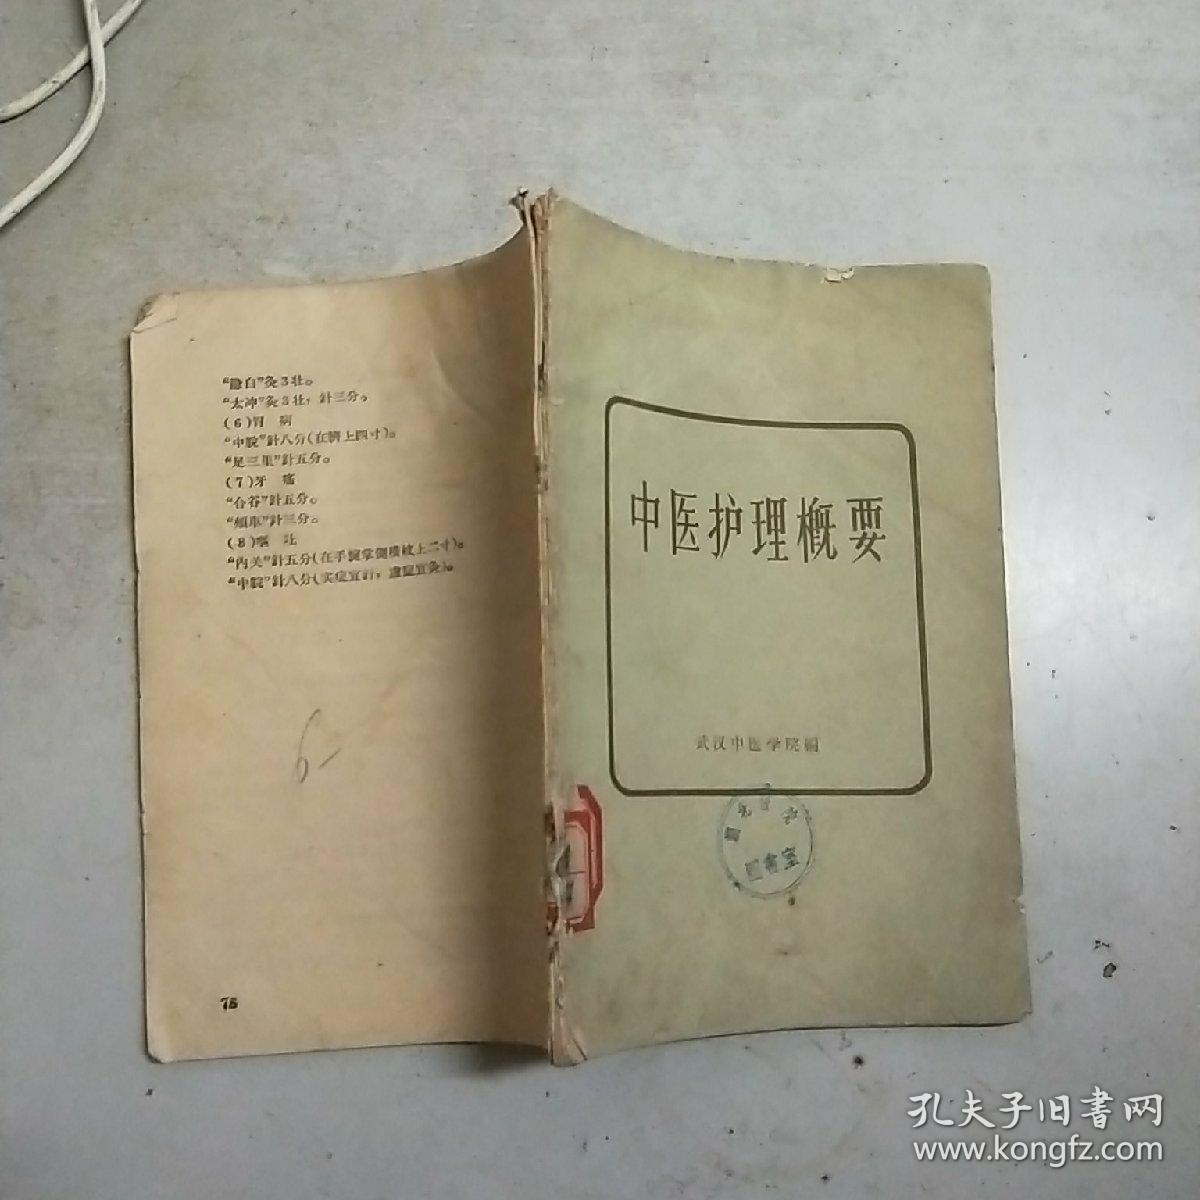 “隐白”灸3壮。
“太冲”灸3壮，針三分。
(6)胃　病
“中脘”針八分(在臍上四寸)。
“足三里”針五分。
(7)牙　痛
“合谷”針五分。
“頰車”針三分。
(8)嘔　吐
“內关”針五分(在手腕掌側橫紋上二寸)。
“中脘”針八分(实症宜針，虛症宜灸)。
6-
75
中医护理概要
武汉中医学院編
图書室
孔夫子旧書网
www.kongfz.com